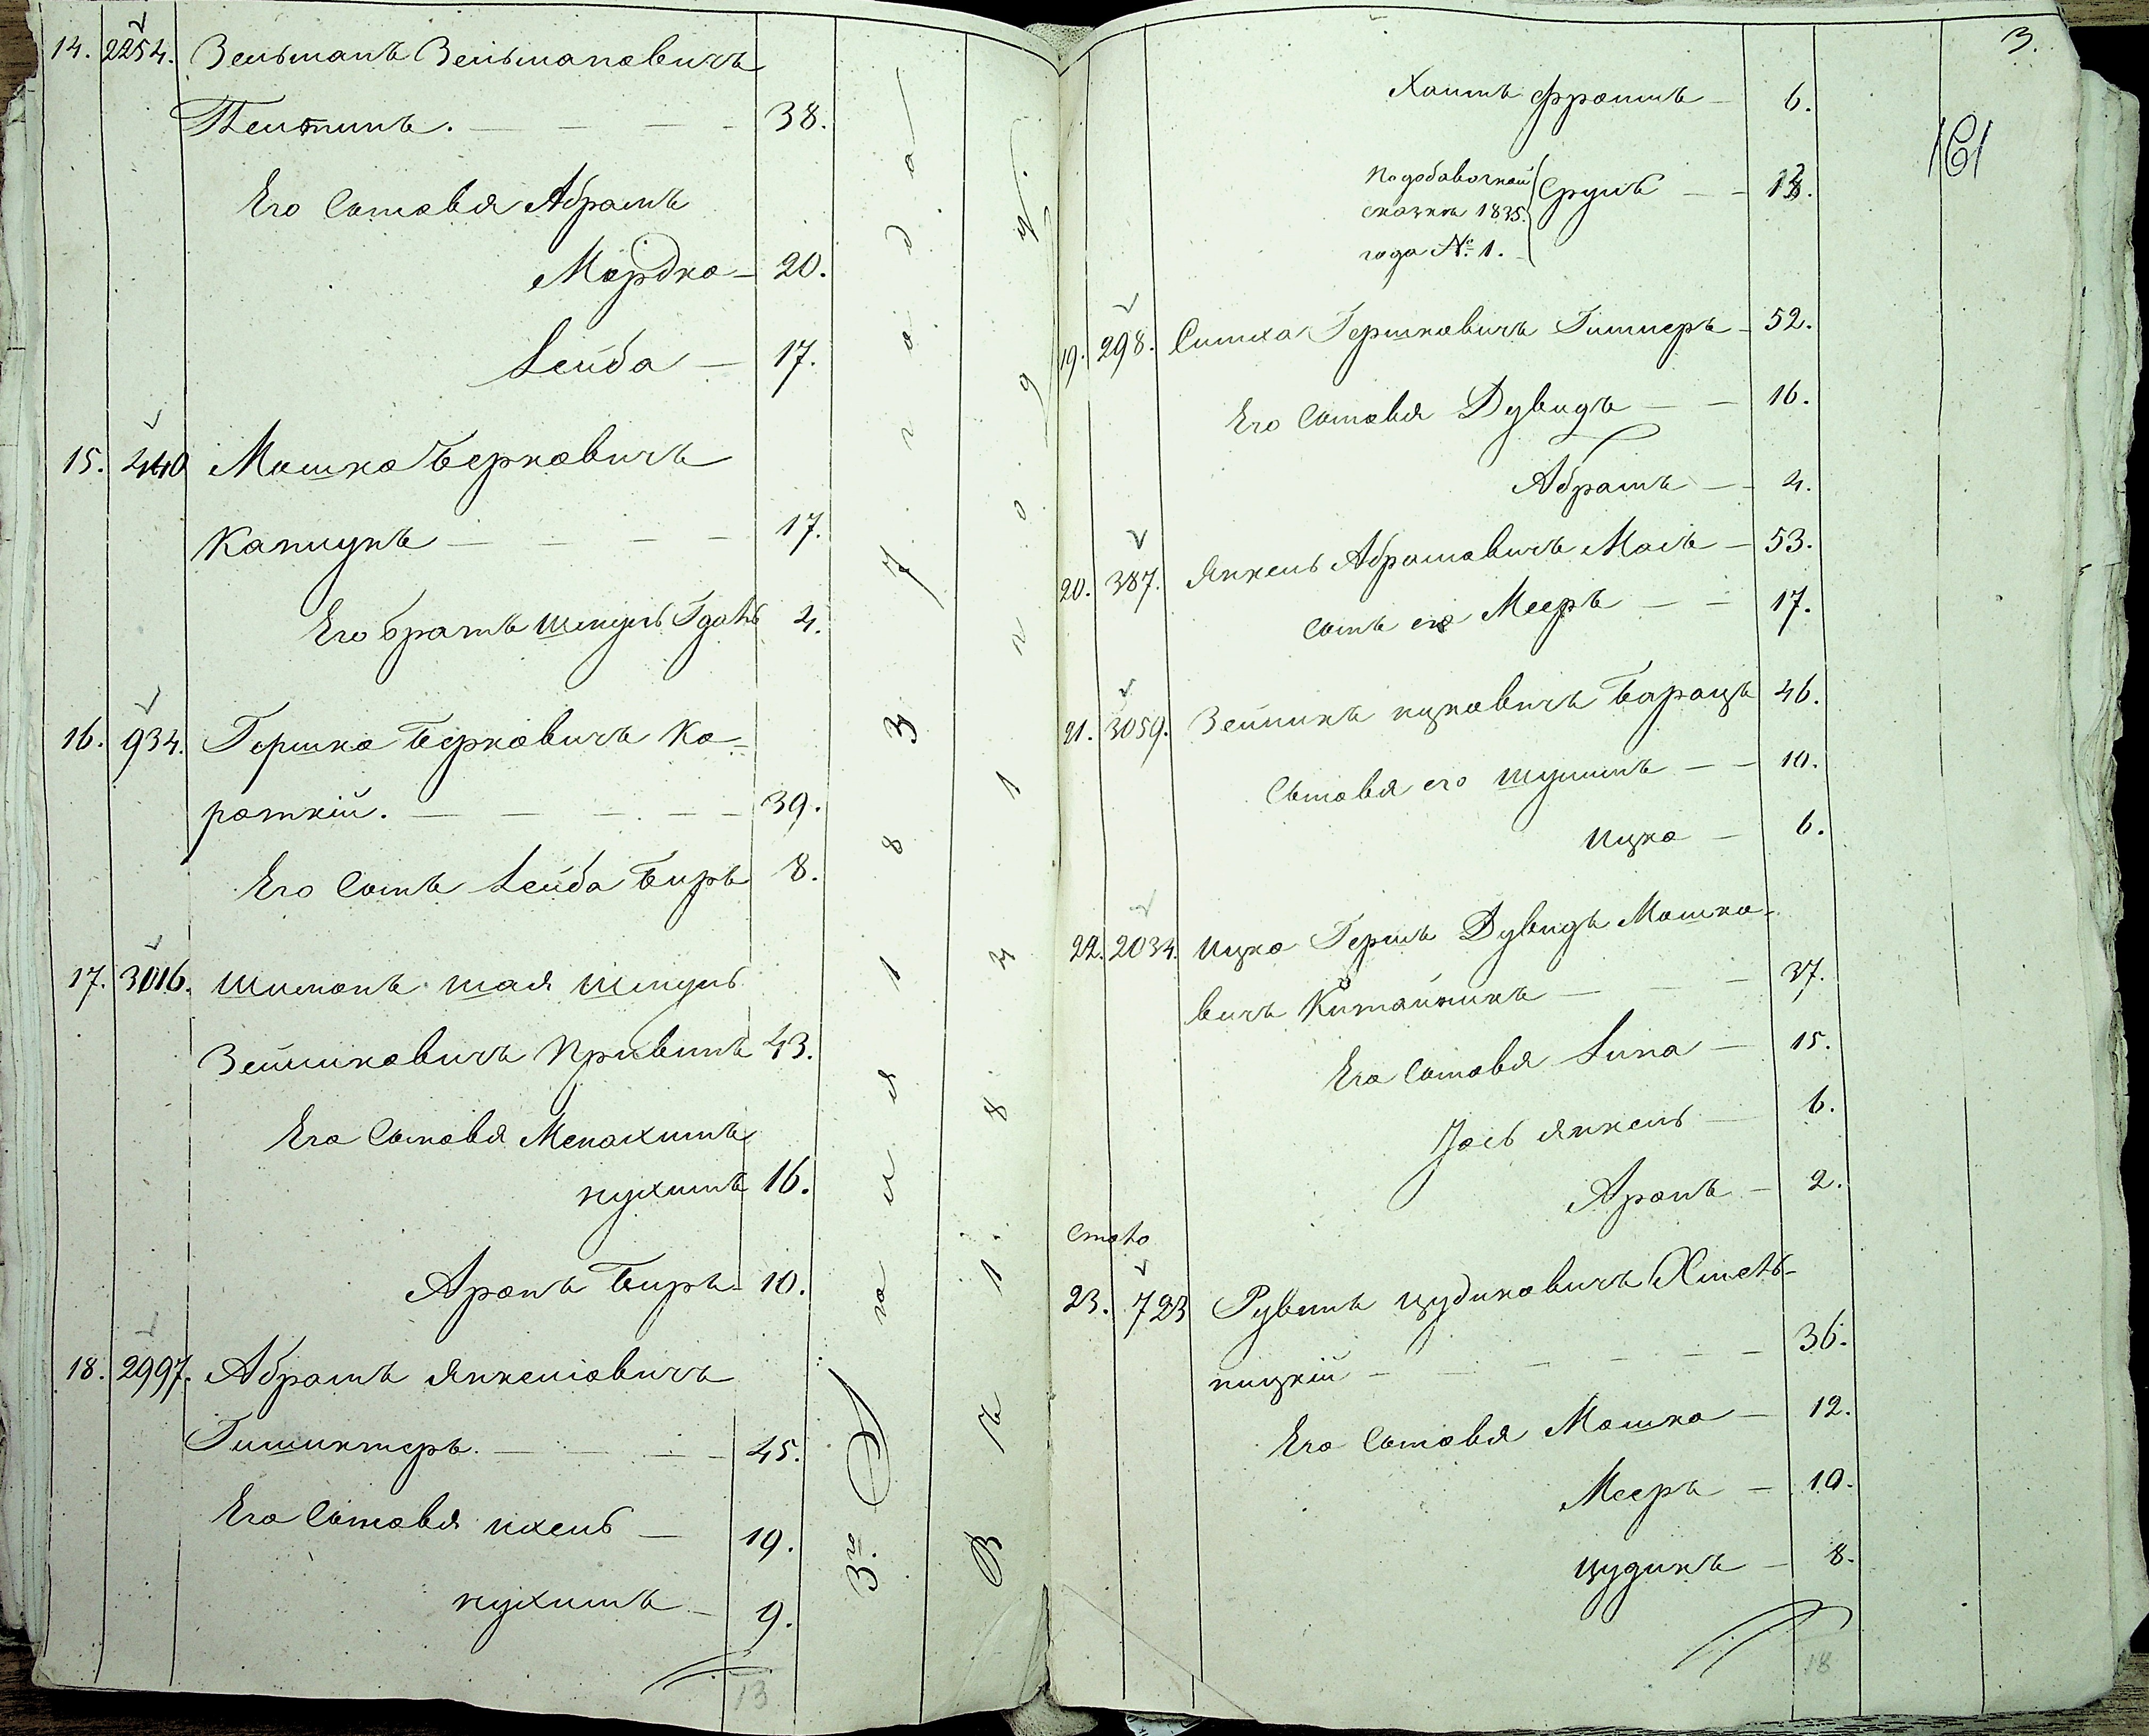 14. 2254. Зельманъ Зельмановичъ
Пельтинъ. — — — — 38.
Его Сыновья Абрамъ
Мордко — 20.
Лейба — 17.
15. 440 Мошко Берковичъ
Капцунъ — — — — 17.
Его братъ Шмуль Гдаль 4.
16. 934. Гершко Берковичъ Ко-
роткій. — — — — — 39.
Его Сынъ Лейба Биръ 8.
17. 3016. Шимонъ Шая Шмуль
Зейликовичъ Привинъ 43.
Его Сыновья Менахимъ
нухимъ 16.
Аронъ Биръ 10.
18. 2997. Абрамъ Янкелювичъ
Гишинтеръ. — — — — 45.
Его Сыновья ихель — 19.
нухимъ — 9.
13
3го
1834 года
Въ 1834
3.
161
Хаимъ Фроимъ — 6.
По добавочной
сказкѣ 1835.
года №. 1.
Срулъ — — 13.
19. 298. Симха Гершковичъ Гитлеръ — 52.
Его Сыновья Дувидъ — — 16.
Абрамъ — — 4.
20. 387. Янкель Абрамовичъ Маль — 53.
Сынъ его Мееръ — — 17.
21. 3059. Зейликъ ицковичъ Барацъ 46.
Сыновья его Шулимъ — — 10.
Ицко — 6.
22. 2034. Ицко Гершъ Дувидъ Мошко-
вичъ Китайникъ — — — 37.
Его Сыновья Липа — 15.
Іось Янкель — 6.
Аронъ — 2.
23. 723 Рувинъ Цудиковичъ Хмель-
ницкій — — — — — 36.
Его Сыновья Мошко — 12.
Мееръ — 10.
Цудикъ — 8.
18